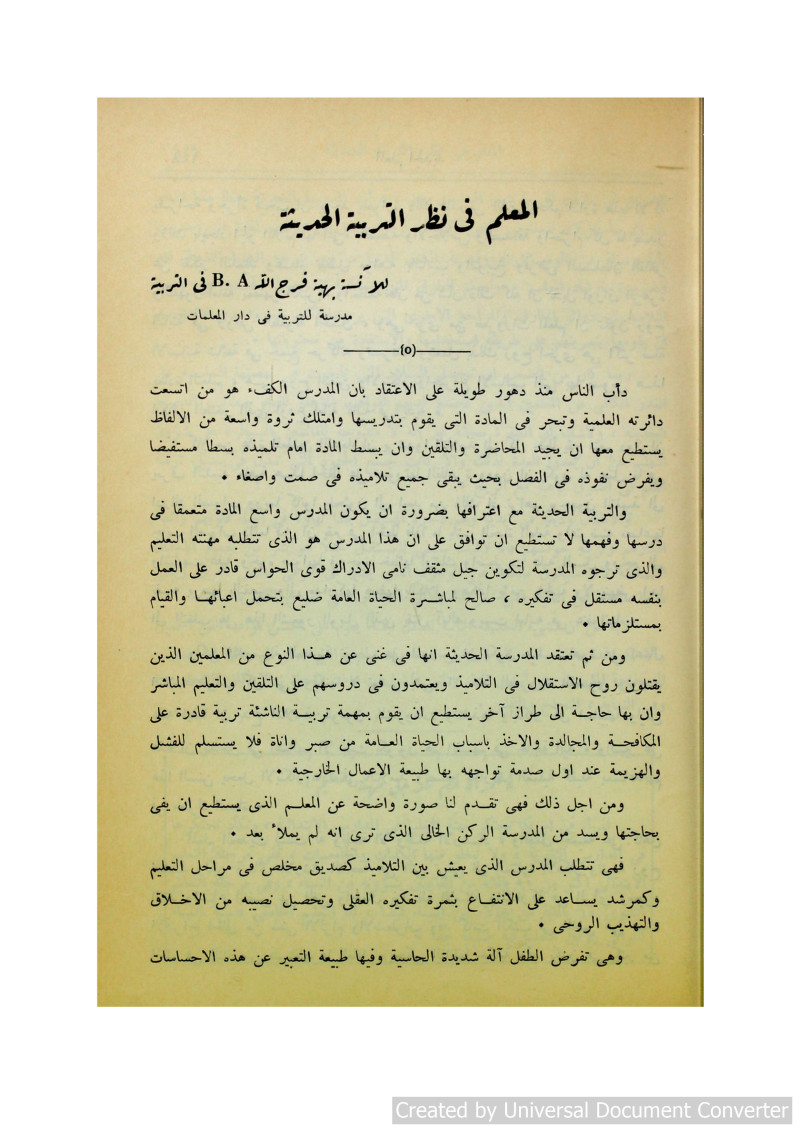 المعلم فى نظر التربية الحديثة
للآنسة بهية فرج الله B. A فى التربية
مدرسة للتربية فى دار المعلمات
(٥)
دأب الناس منذ دهور طويلة على الاعتقاد بان المدرس الكفء هو من اتسعت
دائرته العلمية وتبحر فى المادة التى يقوم بتدريسها وامتلك ثروة واسعة من الالفاظ
يستطيع معها ان يجيد المحاضرة والتلقين وان يبسط المادة امام تلميذه بسطا مستفيضا
ويفرض نفوذه فى الفصل بحيث يبقى جميع تلاميذه فى صمت واصغاء .
والتربية الحديثة مع اعترافها بضرورة ان يكون المدرس واسع المادة متعمقا فى
درسها وفهمها لا تستطيع ان توافق على ان هذا المدرس هو الذى تتطلبه مهنته التعليم
والذى ترجوه المدرسة لتكوين جيل مثقف نامى الادراك قوى الحواس قادر على العمل
بنفسه مستقل فى تفكيره ، صالح لمباشرة الحياة العامة ضليع بتحمل اعبائها والقيام
بمستلزماتها .
ومن ثم تعتقد المدرسة الحديثة انها فى غنى عن هذا النوع من المعلمين الذين
يقتلون روح الاستقلال فى التلاميذ ويعتمدون فى دروسهم على التلقين والتعليم المباشر
وان بها حاجة الى طراز آخر يستطيع ان يقوم بمهمة تربية الناشئة تربية قادرة على
المكافحة والمجالدة والاخذ باسباب الحياة العامة من صبر واناة فلا يستسلم للفشل
والهزيمة عند اول صدمة تواجهه بها طبيعة الاعمال الخارجية .
ومن اجل ذلك فهى تقدم لنا صورة واضحة عن المعلم الذى يستطيع ان يفى
بحاجتها ويسد من المدرسة الركن الخالى الذى ترى انه لم يملأ بعد .
فهى تتطلب المدرس الذى يعيش بين التلاميذ كصديق مخلص فى مراحل التعليم
وكمرشد يساعد على الانتفاع بثمرة تفكيره العقلى وتحصيل نصيبه من الاخلاق
والتهذيب الروحى .
وهى تفرض الطفل آلة شديدة الحاسية وفيها طبيعة التعبير عن هذه الاحساسات
Created by Universal Document Converter